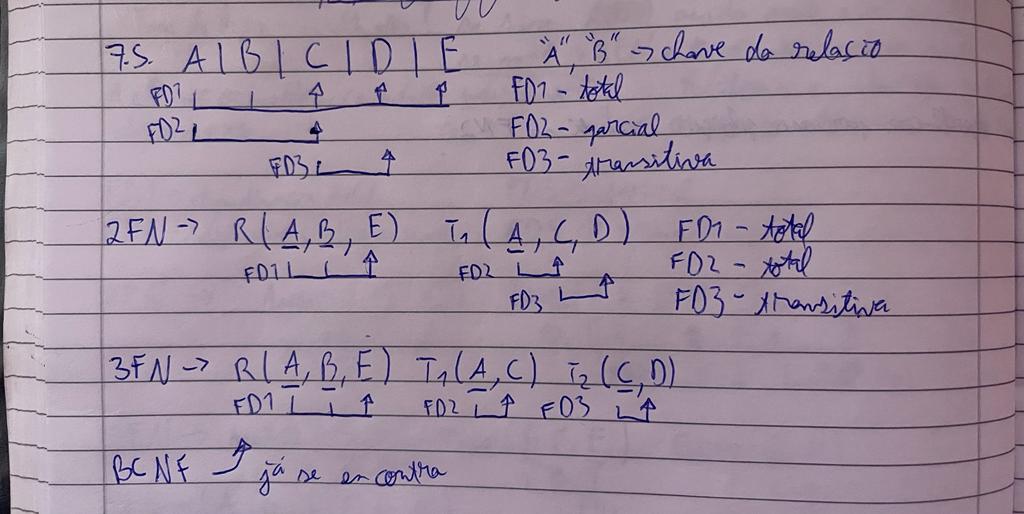 7.5. A | B | C | D | E "A", "B" → chave da relacio
FD1 FD1 - total
FD2 FD2 - parcial
FD3 FD3 - transitiva
2FN → R(A, B, E) T1(A, C, D) FD1 - total
FD1 FD2 FD2 - total
FD3 FD3 - transitiva
3FN → R(A, B, E) T1(A, C) T2(C, D)
FD1 FD2 FD3
BCNF já se encontra